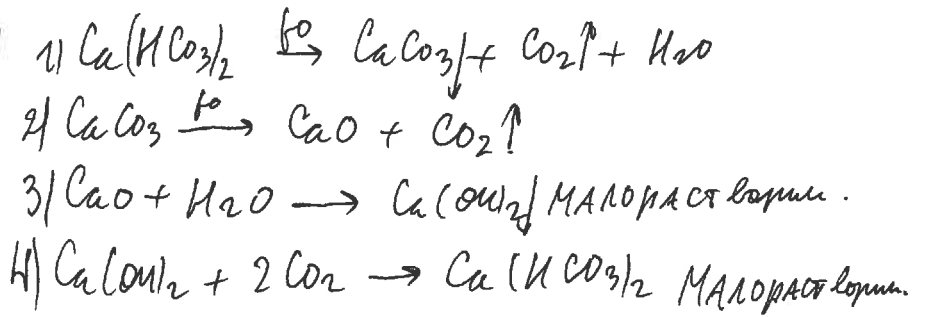 1) Ca(HCO3)2 t° → CaCO3↓ + CO2↑ + H2O
2) CaCO3 t° → CaO + CO2↑
3) CaO + H2O → Ca(OH)2↓ МАЛОРАСТворим.
4) Ca(OH)2 + 2CO2 → Ca(HCO3)2 МАЛОРАСТворим.